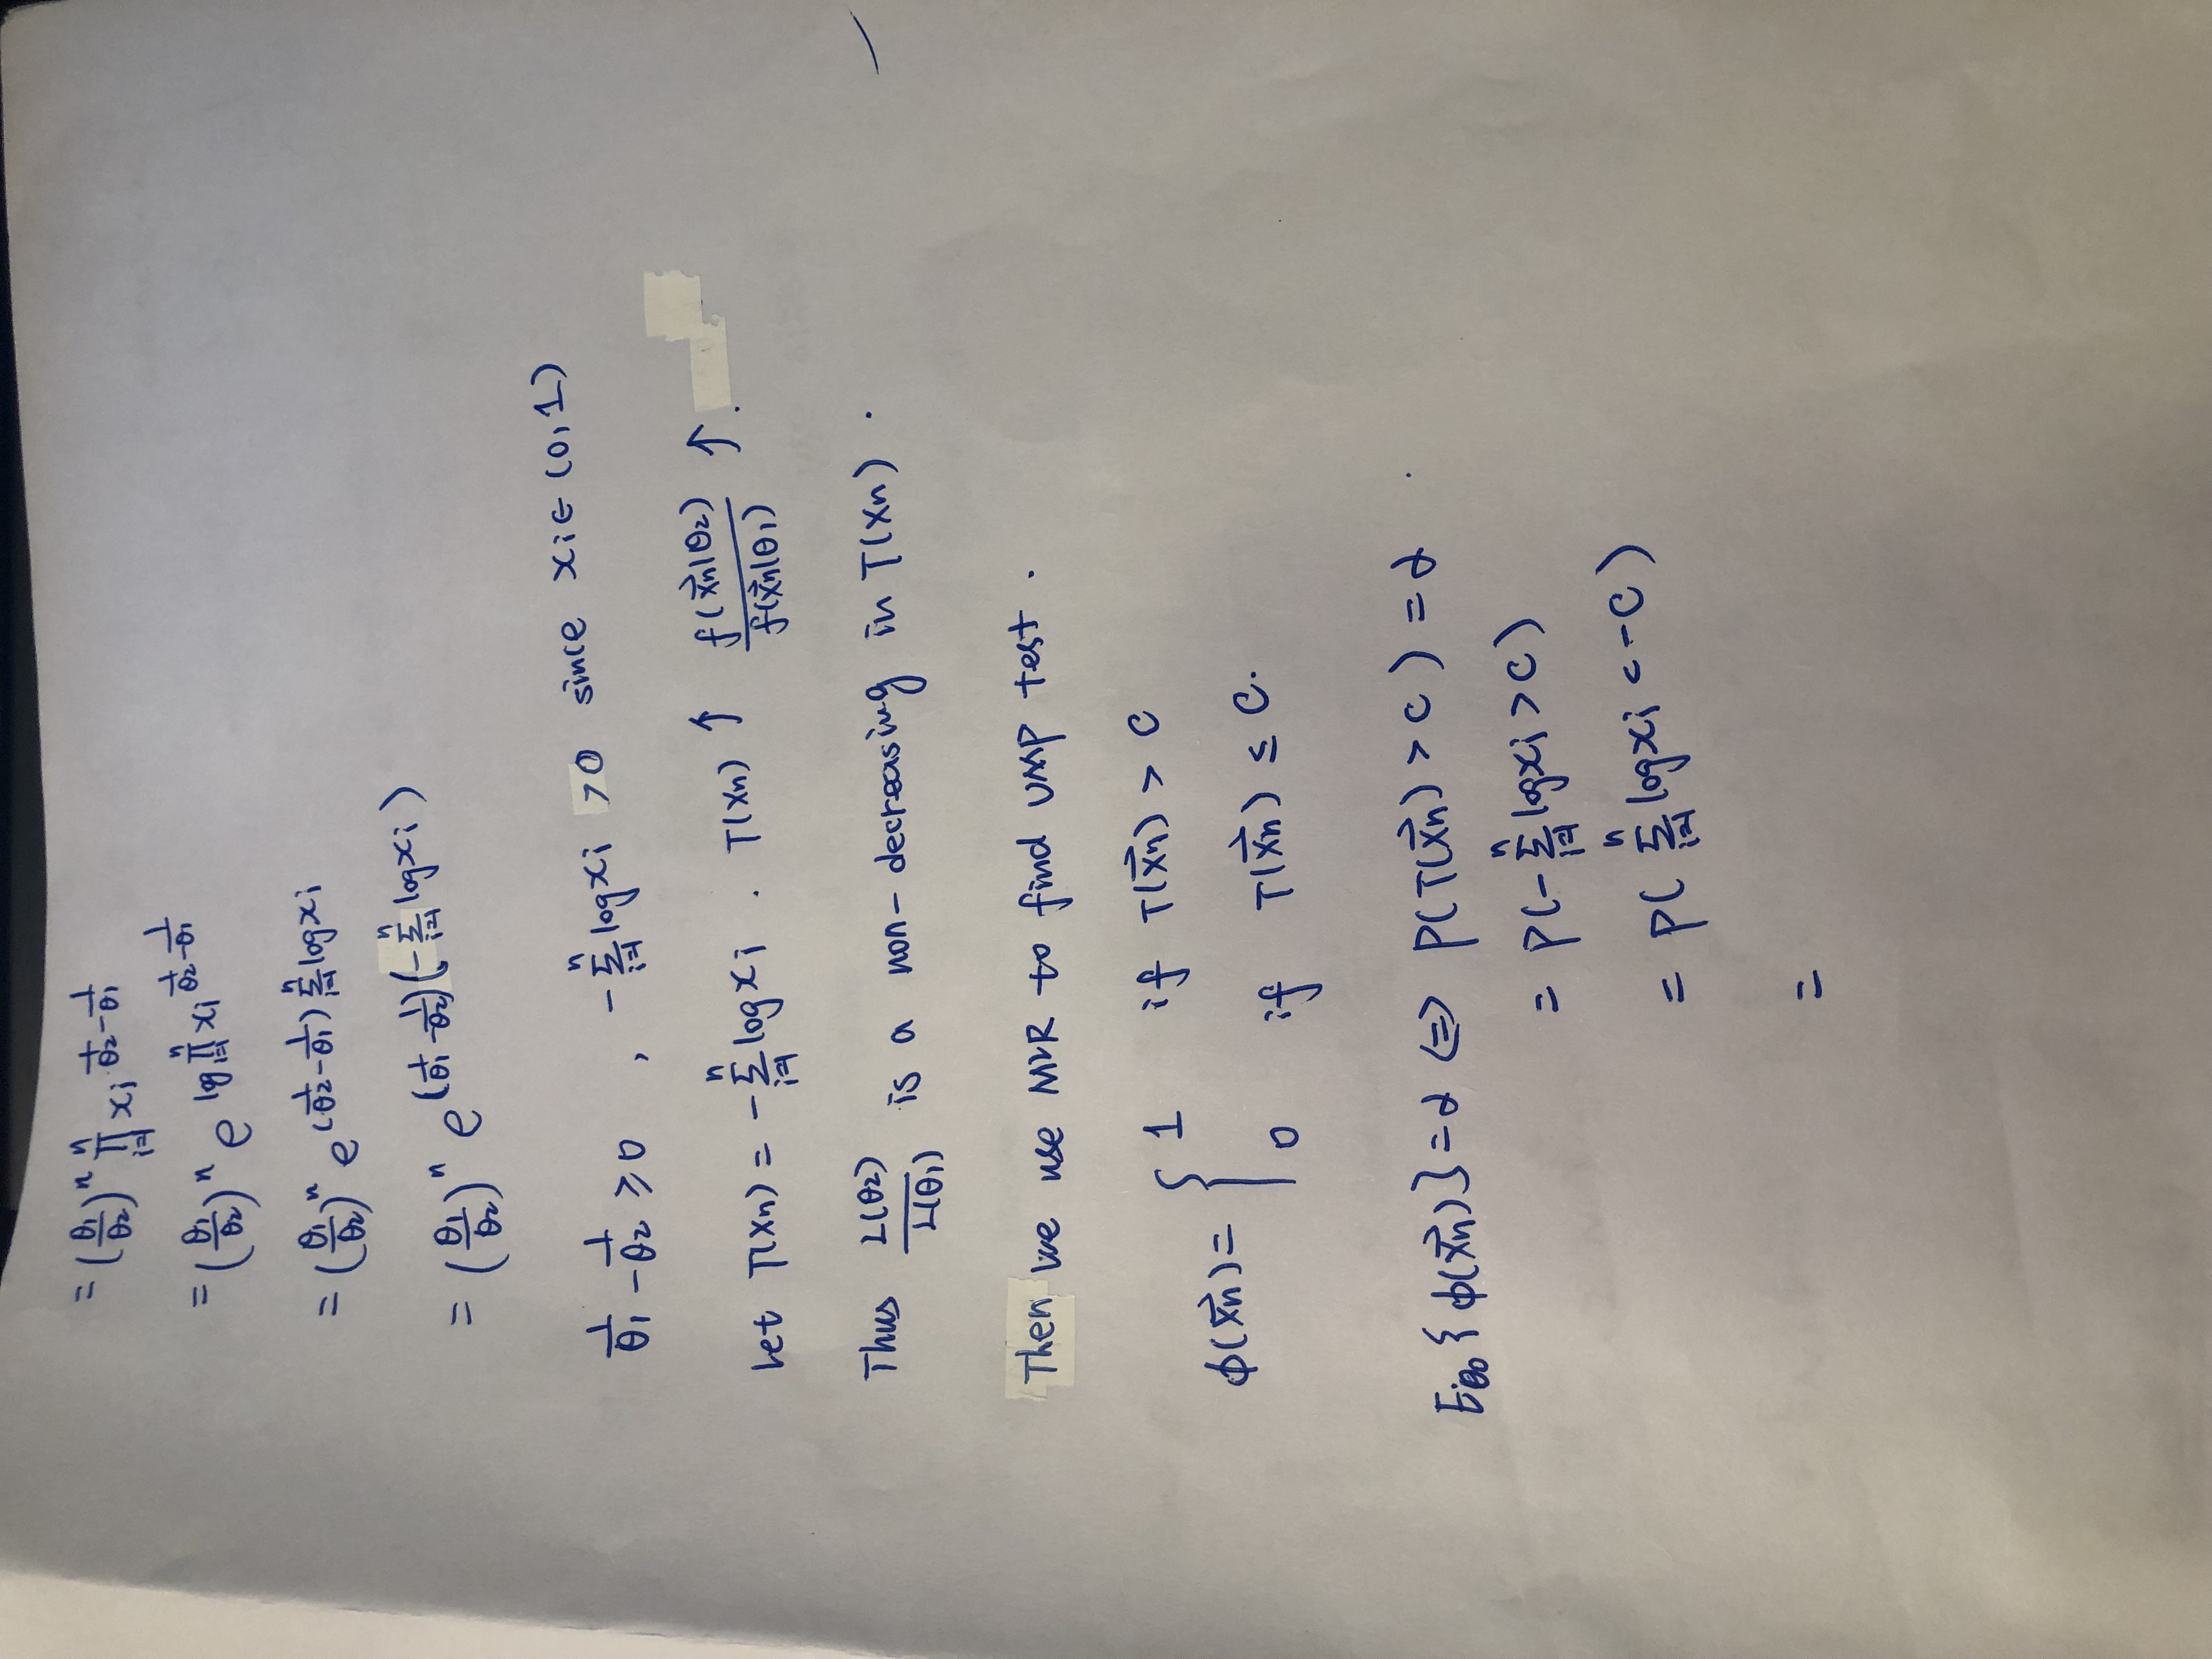 = (θ₁/θ₂)ⁿ ∏ⁿᵢ₌₁ xᵢ^(1/θ₂ - 1/θ₁)
= (θ₁/θ₂)ⁿ e^(log ∏ⁿᵢ₌₁ xᵢ^(1/θ₂ - 1/θ₁))
= (θ₁/θ₂)ⁿ e^((1/θ₂ - 1/θ₁) ∑ⁿᵢ₌₁ log xᵢ)
= (θ₁/θ₂)ⁿ e^((1/θ₁ - 1/θ₂)(-∑ⁿᵢ₌₁ log xᵢ))
1/θ₁ - 1/θ₂ ≥ 0 , -∑ⁿᵢ₌₁ log xᵢ > 0 since xᵢ ∈ (0,1)
Let T(xn) = -∑ⁿᵢ₌₁ log xᵢ . T(xn) ↑ f(x⃗n|θ₂)/f(x⃗n|θ₁) ↑ .
Thus L(θ₂)/L(θ₁) is a non-decreasing in T(xn) .
Then we use MLR to find UMP test .
ϕ(x⃗n) = { 1 if T(x⃗n) > C
0 if T(x⃗n) ≤ C.
E_θ₀{ϕ(x⃗n)} = α ⇔ P(T(x⃗n) > C) = α .
= P(-∑ⁿᵢ₌₁ log xᵢ > C)
= P(∑ⁿᵢ₌₁ log xᵢ < -C)
=